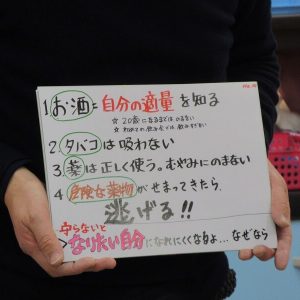 1 お酒 = 自分の適量を知る
☆ 20歳になるまではのまない
☆ 初めての飲み会では飲みすぎない
2 タバコは吸わない
3 薬は正しく使う。むやみにのまない
4 危険な薬物がせまってきたら、
逃げる!!
守らないと
>なりたい自分になれにくくなるよ…なぜなら